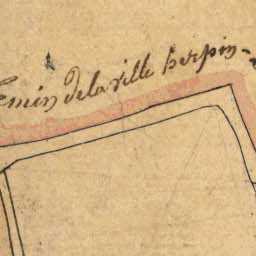 emin de la ville herpin-